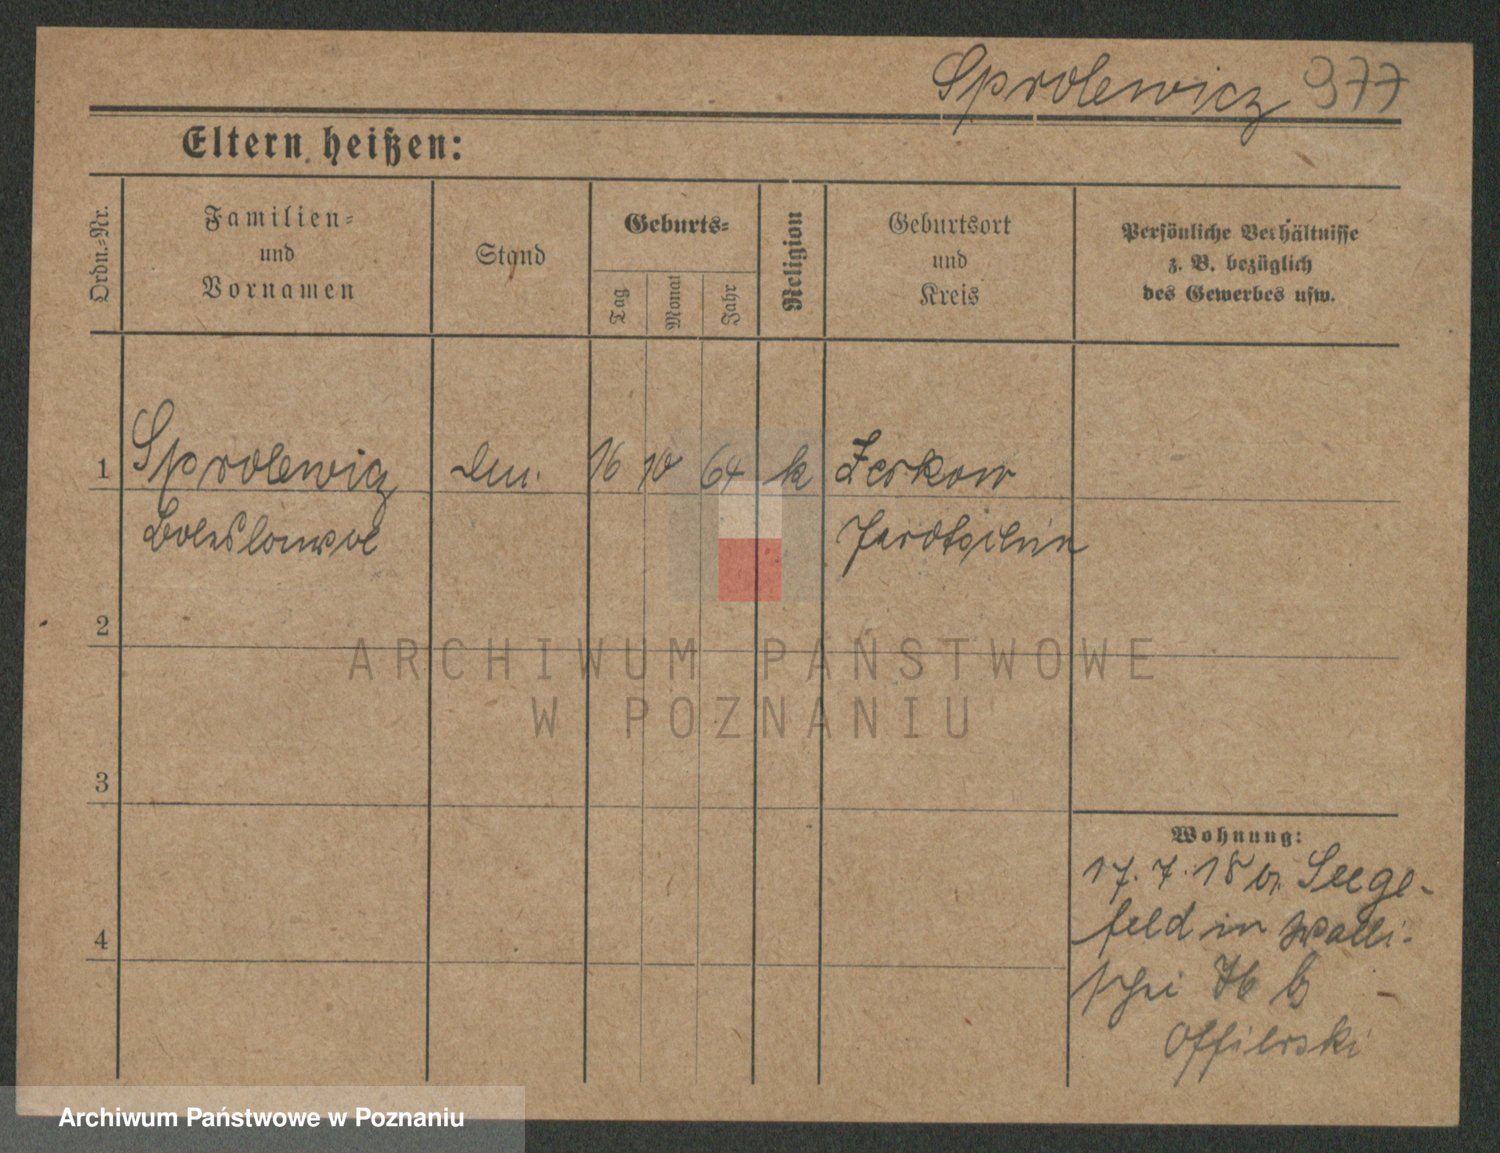 Sprolewicz 977
Eltern heißen:
Ordn.-Nr.
Familien-
und
Vornamen
Stand
Geburts-
Tag
Monat
Jahr
Religion
Geburtsort
und
Kreis
Persönliche Verhältnisse
z. B. bezüglich
des Gewerbes usw.
1 Sprolewicz 16 10 64 k Zerkow
Boleslawa
2
3
4
Wohnung:
17. 7. 18 v. Seege-
feld in Walli-
schei
ARCHIWUM PAŃSTWOWE
W POZNANIU
Archiwum Państwowe w Poznaniu